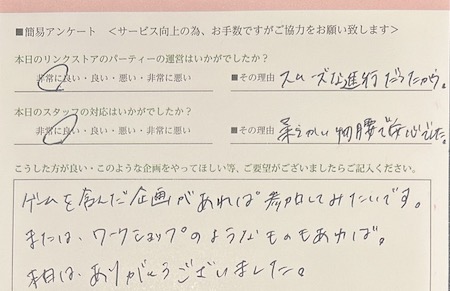 ■簡易アンケート <サービス向上の為、お手数ですがご協力をお願い致します>
本日のリンクストアのパーティーの運営はいかがでしたか?
非常に良い・良い・悪い・非常に悪い ■その理由 スムーズな進行だったから。
本日のスタッフの対応はいかがでしたか?
非常に良い・良い・悪い・非常に悪い ■その理由 柔らかい物腰で安心でした。
こうした方が良い・このような企画をやってほしい等、ご要望がございましたらご記入ください。
ゲームを含んだ企画があれば参加してみたいです。
または、ワークショップのようなものもあれば。
本日は、ありがとうございました。